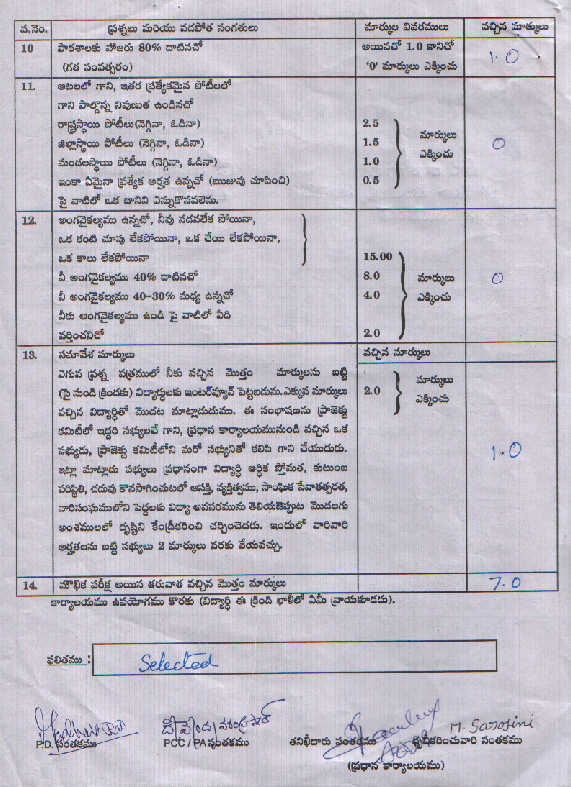 వ.నెం. ప్రశ్నలు మరియు వడపోత సంగతులు మార్కుల వివరములు వచ్చిన మార్కులు
10 పాఠశాలకు హాజరు 80% దాటినచో అయినచో 1.0 కానిచో 1.0
(గత సంవత్సరం) '0' మార్కులు ఎక్కించు
11. ఆటలలో గాని, ఇతర ప్రత్యేకమైన పోటీలలో
గాని పాల్గొన్న నిపుణుత ఉండినచో
రాష్ట్రస్థాయి పోటీలు(నెగ్గినా, ఓడినా) 2.5 మార్కులు 0
జిల్లాస్థాయి పోటీలు (నెగ్గినా, ఓడినా) 1.5 ఎక్కించు
మండలస్థాయి పోటీలు (నెగ్గినా, ఓడినా) 1.0
ఇంకా ఏమైనా ప్రత్యేక అర్హత ఉన్నచో (ఋజువు చూపించి) 0.5
పై వాటిలో ఒక దానిని ఎన్నుకొనవలెను.
12. అంగవైకల్యము ఉన్నచో, నీవు నడవలేక పోయినా,
ఒక కంటి చూపు లేకపోయినా, ఒక చేయి లేకపోయినా,
ఒక కాలు లేకపోయినా 15.00
నీ అంగవైకల్యము 40% దాటినచో 8.0 మార్కులు 0
నీ అంగవైకల్యము 40-30% మధ్య ఉన్నచో 4.0 ఎక్కించు
నీకు అంగవైకల్యము ఉండి పై వాటిలో ఏది
వర్తించనిచో 2.0
13. సమావేశ మార్కులు వచ్చిన మార్కులు
ఎగువ ప్రశ్న పత్రములో నీకు వచ్చిన మొత్తం మార్కులను బట్టి మార్కులు
(పై నుండి క్రిందకు) విద్యార్థులకు ఇంటర్వ్యూన్ పెట్టబడును. ఎక్కువ మార్కులు 2.0 ఎక్కించు
వచ్చిన విద్యార్థితో మొదట మాట్లాడుదుము. ఈ సంభాషణను ప్రాజెక్టు
కమిటీలో ఇద్దరి సభ్యులచే గాని, ప్రధాన కార్యాలయమునుండి వచ్చిన ఒక
సభ్యుడు, ప్రాజెక్టు కమిటీలోని మరో సభ్యునితో కలిసి గాని చేయుదురు. 1.0
ఇట్లా మాట్లాడు సభ్యులు ప్రధానంగా విద్యార్థి ఆర్థిక స్తోమత, కుటుంబ
పరిస్థితి, చదువు కొనసాగించుటలో ఆసక్తి, వ్యక్తిత్వము, సాంఘిక సేవాతత్పరత,
వారిసంఘములోని పెద్దలకు విద్యా అవసరమును తెలియజెప్పుట మొదలగు
అంశములలో దృష్టిని కేంద్రీకరించి చర్చించెదరు. ఇందులో వారివారి
అర్హతలను బట్టి సభ్యులు 2 మార్కులు వరకు వేయవచ్చు.
14. మౌఖిక పరీక్ష అయిన తరువాత వచ్చిన మొత్తం మార్కులు 7.0
కార్యాలయము ఉపయోగము కొరకు (విద్యార్థి ఈ క్రింది ఖాళీలో ఏమీ వ్రాయకూడదు).
ఫలితము : Selected
M. Sarojini
P.D. సంతకము PCC / PA సంతకము తనిఖీదారు సంతకము ధృవీకరించువారి సంతకము
(ప్రధాన కార్యాలయము)